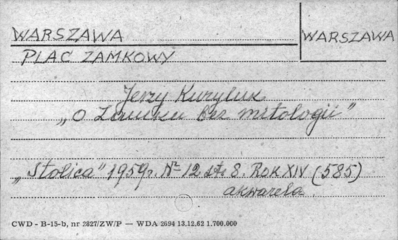 WARSZAWA
WARSZAWA
PLAC ZAMKOWY
Jerzy Kuryluk
„O Zamku bez mitologii"
„Stolica" 1959r. Nr 12 str 8. ROK XIV (585)
akwarela.
CWD - B-15-b, nr 2827/ZW/P — WDA 2694 13.12.62 1.700.000